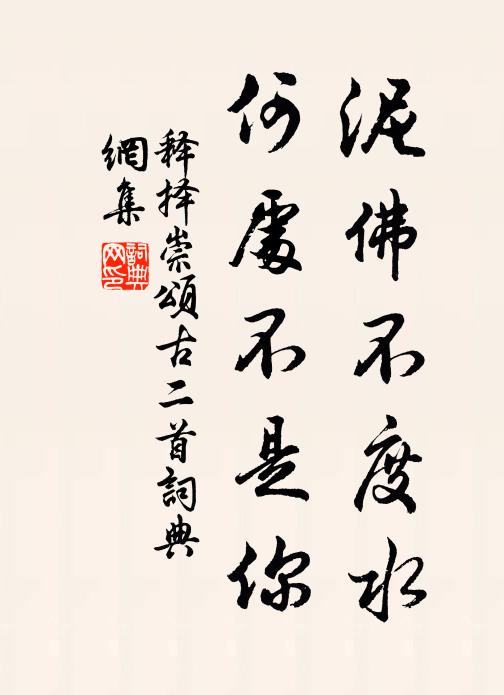 泥佛不度水
何處不是你
释择崇頌古二首詞典
網集
詞典
网印